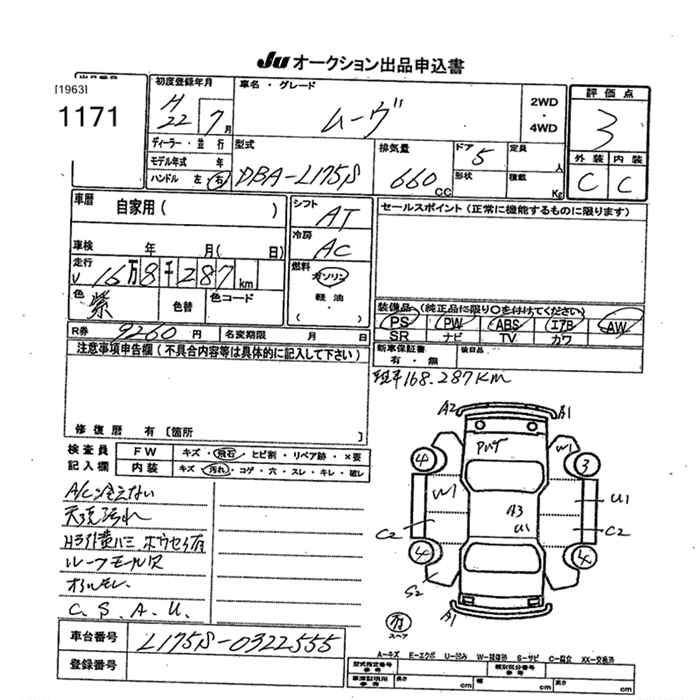 Ju オークション出品申込書
[1963]
1171
初度登録年月
H
22 7月
車名・グレード
ムーヴ
2WD
・
4WD
評価点
3
外装 内装
C C
ディーラー・並行
モデル年式 年
ハンドル 左 右
型式
DBA-L175S
排気量
660
CC
ドア 5
形状
定員
人
積載
Kg
車歴
自家用( )
シフト
AT
冷房
AC
セールスポイント(正常に機能するものに限ります)
車検 年 月( 日)
走行
V 16万8千287km
燃料
ガソリン
軽油
・
( )
色
紫
色替
色コード
装備品(純正品に限り○を付けてください)
PS PW ABS エアB AW
SR ナビ TV カワ
R券 9260円 名変期限 月 日
新車保証書
有・無
後日品
注意事項申告欄(不具合内容等は具体的に記入して下さい)
現車168.287KM
修復歴 有〔箇所 〕
検査員
記入欄
FW キズ・飛石・ヒビ割・リペア跡・×要
内装 キズ・汚れ・コゲ・穴・スレ・キレ・破レ
A/C冷えない
天張汚れ
ルーフモールR
オイルモレ
C.S.A.U.
A2 A1
4 3
W1 W1
A3
U1
U1
C2 C2
4 4
S2 A1
有
スペア
車台番号 L175S-0322555
登録番号
A-キズ E-エクボ U-凹み W-補修跡 S-サビ C-腐食 XX-交換済
型式指定番号
参考
類別区分番号
参考
車庫証明用
参考
長さ cm 幅 cm 高さ cm